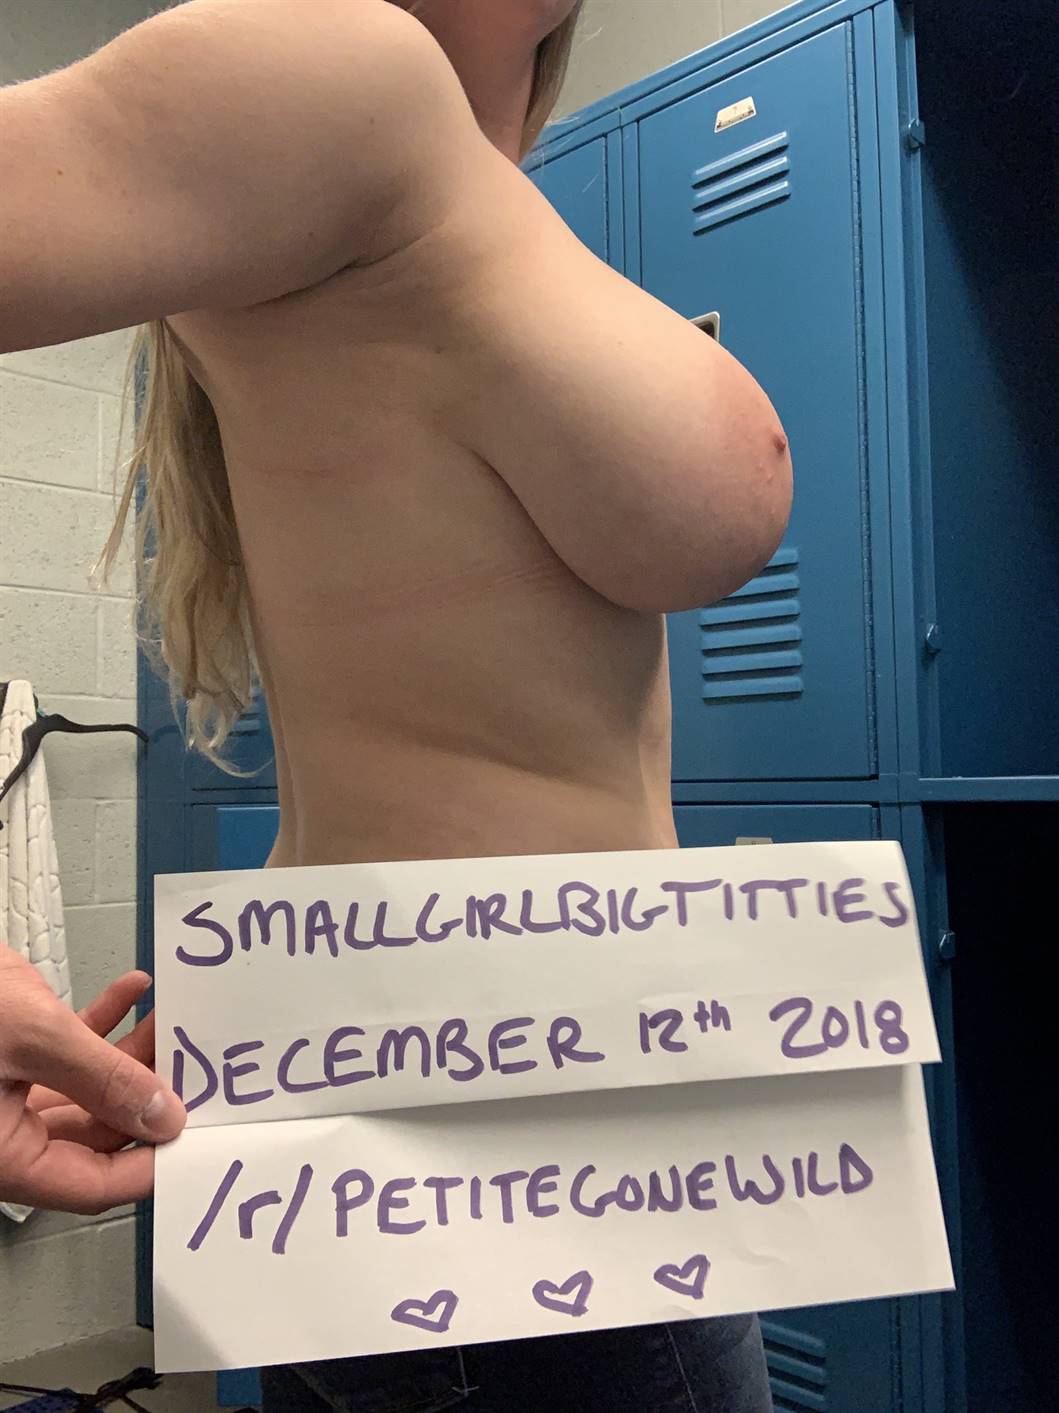 SMALLGIRLBIGTITTIES
DECEMBER 12th 2018
/r/PETITEGONEWILD